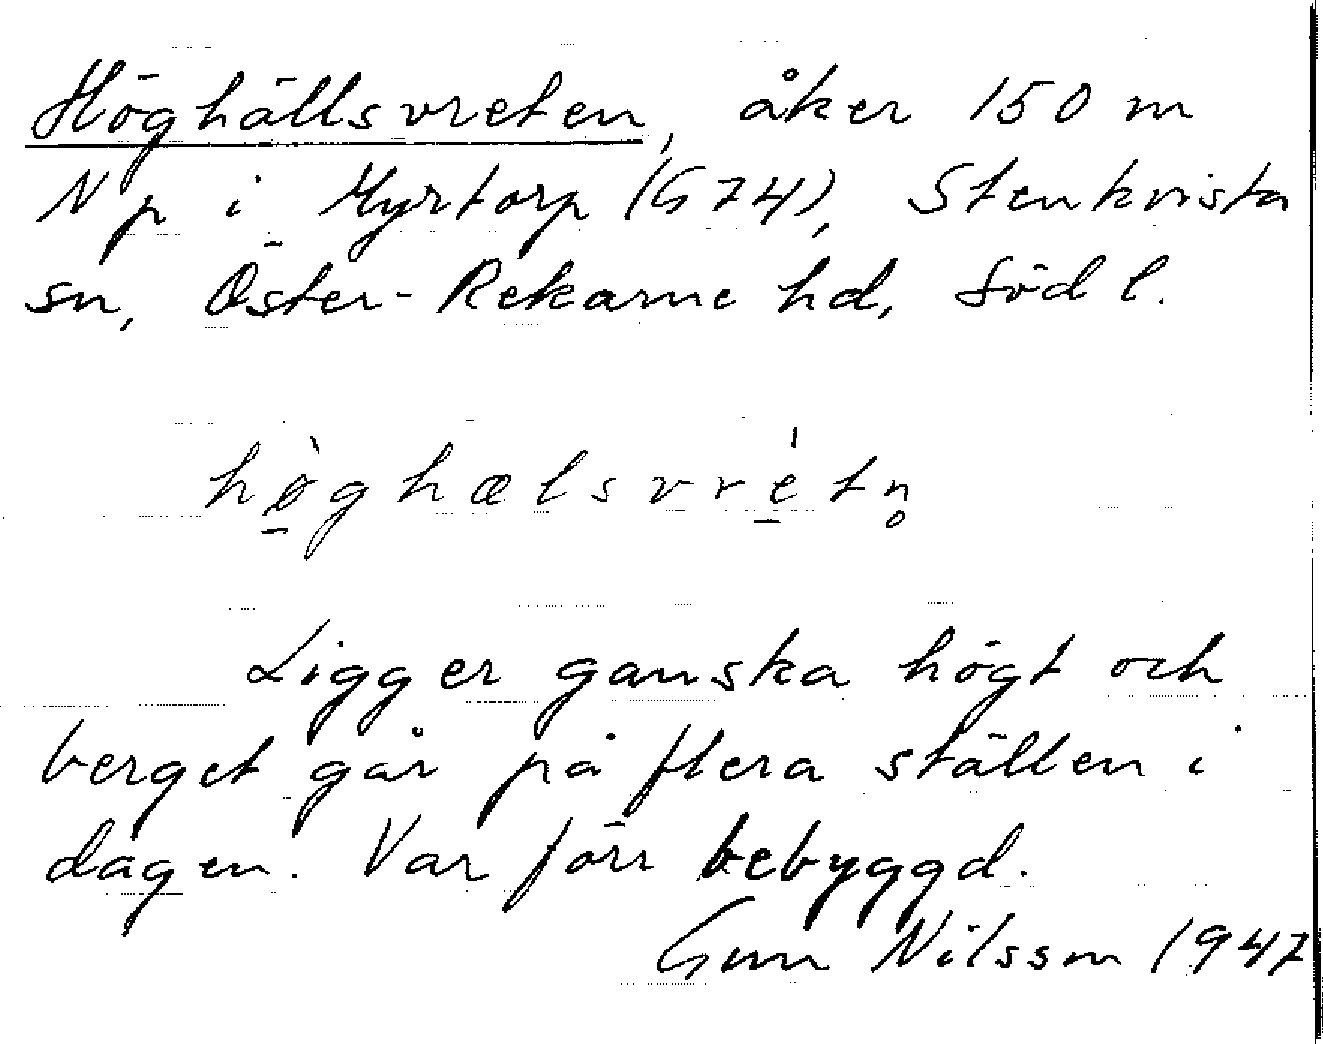 Höghällsvreten, åker 150 m
N p i Myrtorp (G74), Stenkvista
sn, Öster-Rekarne hd, Södl.
hø̠̀ghælsvre̠̍tn̥
Ligger ganska högt och
berget går på flera ställen i
dagen. Var förr bebyggd.
Gun Nilsson 1947